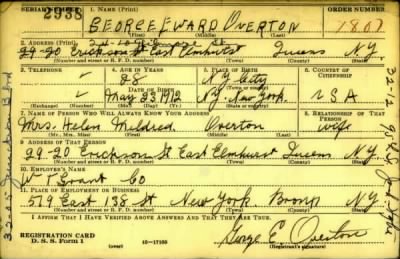 SERIAL NUMBER 1. NAME (Print)
2938 GEORGE EWARD OVERTON 1807
(First) (Middle) (Last)
2. ADDRESS (Print)
29-20 Erickson St East Elmhurst Queens N.Y.
(Number and street or R. F. D. number) (Town) (County) (State)
3. TELEPHONE 4. AGE IN YEARS 5. PLACE OF BIRTH 6. COUNTRY OF CITIZENSHIP
28 N.Y. City
(Town or county)
DATE OF BIRTH
May 23 1912 N.Y. New York. USA
(Exchange) (Number) (Mo.) (Day) (Yr.) (State or country)
7. NAME OF PERSON WHO WILL ALWAYS KNOW YOUR ADDRESS 8. RELATIONSHIP OF THAT PERSON
Mrs. Helen Mildred Overton wife
(Mr., Mrs., Miss) (First) (Middle) (Last)
9. ADDRESS OF THAT PERSON
29-20 Erickson St East Elmhurst Queens N.Y.
(Number and street or R. F. D. number) (Town) (County) (State)
10. EMPLOYER'S NAME
W T Grant Co
11. PLACE OF EMPLOYMENT OR BUSINESS
519 East 138 St New York Bronx N.Y.
(Number and street or R. F. D. number) (Town) (County) (State)
I AFFIRM THAT I HAVE VERIFIED ABOVE ANSWERS AND THAT THEY ARE TRUE.
REGISTRATION CARD
D. S. S. Form 1 (over) 16-17105 George E. Overton
(Registrant's signature)